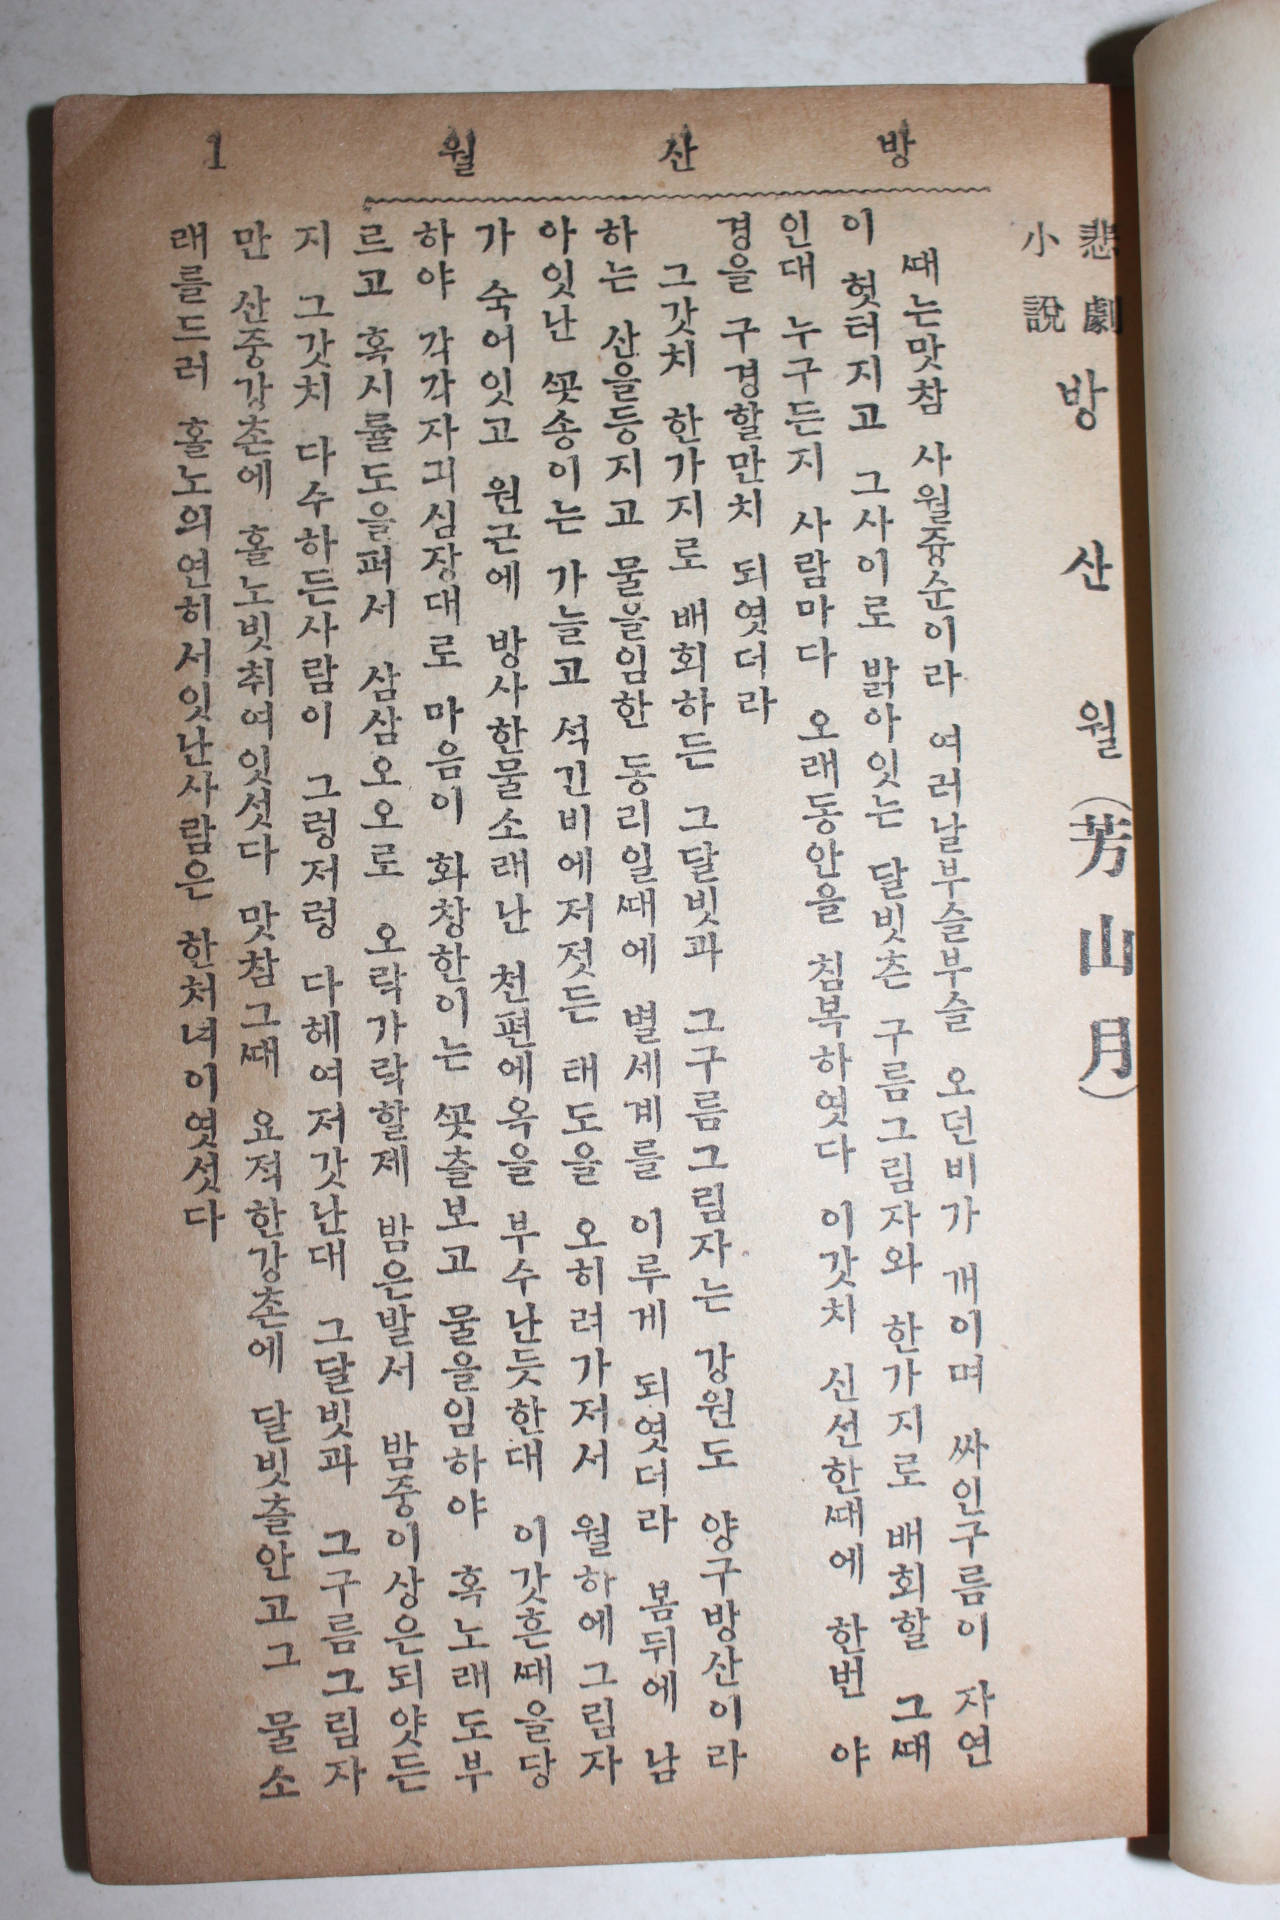 방산월 1
悲劇
小說
방산월(芳山月)
ᄯᅢ는맛참 사월즁순이라 여러날부슬부슬 오던비가 개이며 싸인구름이 자연
이 헛터지고 그사이로 밝아잇는 달빗츤 구름그림자와 한가지로 배회할 그ᄯᅢ
인대 누구든지 사람마다 오래동안을 침복하엿다 이갓치 신선한ᄯᅢ에 한번 야
경을 구경할만치 되엿더라
그갓치 한가지로 배회하든 그달빗과 그구름그림자는 강원도 양구방산이라
하는 산을등지고 물을임한 동리일ᄯᅢ에 별세계를 이루게 되엿더라 봄뒤에 남
아잇난 ᄭᅩᆺ송이는 가늘고 석긴비에저젓든 태도을 오히려가저서 월하에그림자
가 숙어잇고 원근에 방사한물소래난 천편에옥을 부수난듯한대 이갓흔ᄯᅢ을당
하야 각각자긔심장대로 마음이 화창한이는 ᄭᅩᆺ츨보고 물을임하야 혹노래도부
르고 혹시률도을펴서 삼삼오오로 오락가락할제 밤은발서 밤중이상은되얏든
지 그갓치 다수하든사람이 그렁저렁 다헤여저갓난대 그달빗과 그구름그림자
만 산중강촌에 홀노빗취여잇섯다 맛참그ᄯᅢ 요적한강촌에 달빗츨안고그 물소
래를드러 홀노의연히서잇난사람은 한처녀이엿섯다